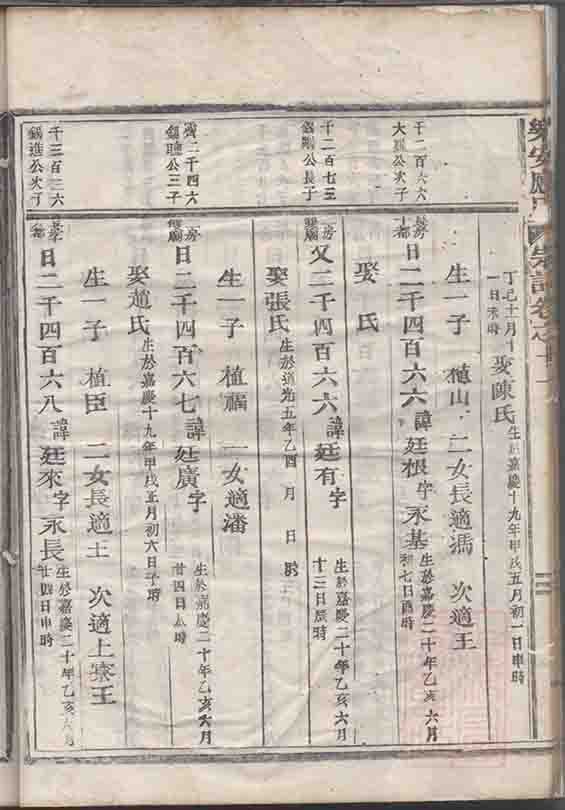 樂安 宗譜卷之十一
丁巳十一月十一日未時 娶陳氏 生於嘉慶十九年甲戌五月初一日申時
生一子 植山 二女長適馮 次適王
千二百六六 大 公次子
日二千四百六六 諱廷根 字永基 生於嘉慶二十年乙亥六月初七日酉時
娶 氏
千二百七三 錫 公長子
又二千四百六六 諱廷有 字 生於嘉慶二十年乙亥六月十三日辰時
娶張氏 生於道光五年乙酉 月 日 時
生一子 植福 一女適潘
齊二千四六 錫 公三子
日二千四百六七 諱廷廣 字 生於嘉慶二十年乙亥六月廿四日 時
娶趙氏 生於嘉慶十九年甲戌五月初六日子時
生一子 植臣 二女長適王 次適上寮王
千三百三六 錫進公次子
日二千四百六八 諱廷來 字永長 生於嘉慶二十年乙亥六月廿四日申時